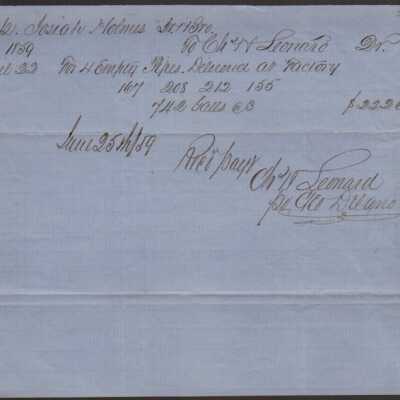 Josiah Holmes Jr & Bro
To Chs W Leonard Dr.
1859
22 For 4 Empty Pipes. Delivered at Factory
167 208 212 155
742 Galls @ 3 $22.26
June 25th/59
Rec'd payt
Chs W Leonard
pr Geo Delano